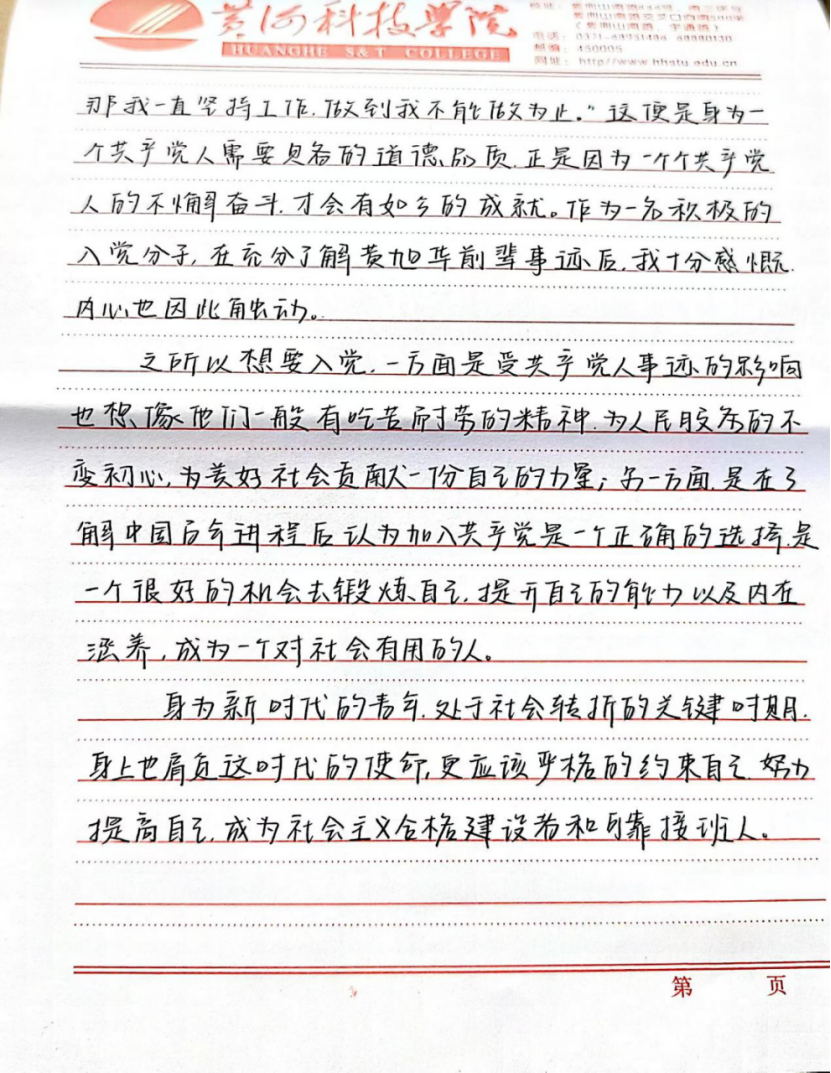 黄河科技学院
HUANGHE S&T COLLEGE
电话：0371-
邮编：450005
网址：http://www.hhstu.edu.cn
那我一直坚持工作，做到我不能做为止。”这便是身为一
个共产党人需要具备的道德品质，正是因为一个个共产党
人的不懈奋斗，才会有如今的成就。作为一名积极的
入党分子，在充分了解黄旭华前辈事迹后，我十分感慨，
内心也因此触动。
之所以想要入党，一方面是受共产党人事迹的影响
也想像他们一般有吃苦耐劳的精神，为人民服务的不
变初心，为美好社会贡献一份自己的力量；另一方面，是在了
解中国百年进程后认为加入共产党是一个正确的选择，是
一个很好的机会去锻炼自己，提升自己的能力以及内在
涵养，成为一个对社会有用的人。
身为新时代的青年，处于社会转折的关键时期，
身上也肩负这时代的使命，更应该严格的约束自己，努力
提高自己，成为社会主义合格建设者和可靠接班人。
第 页